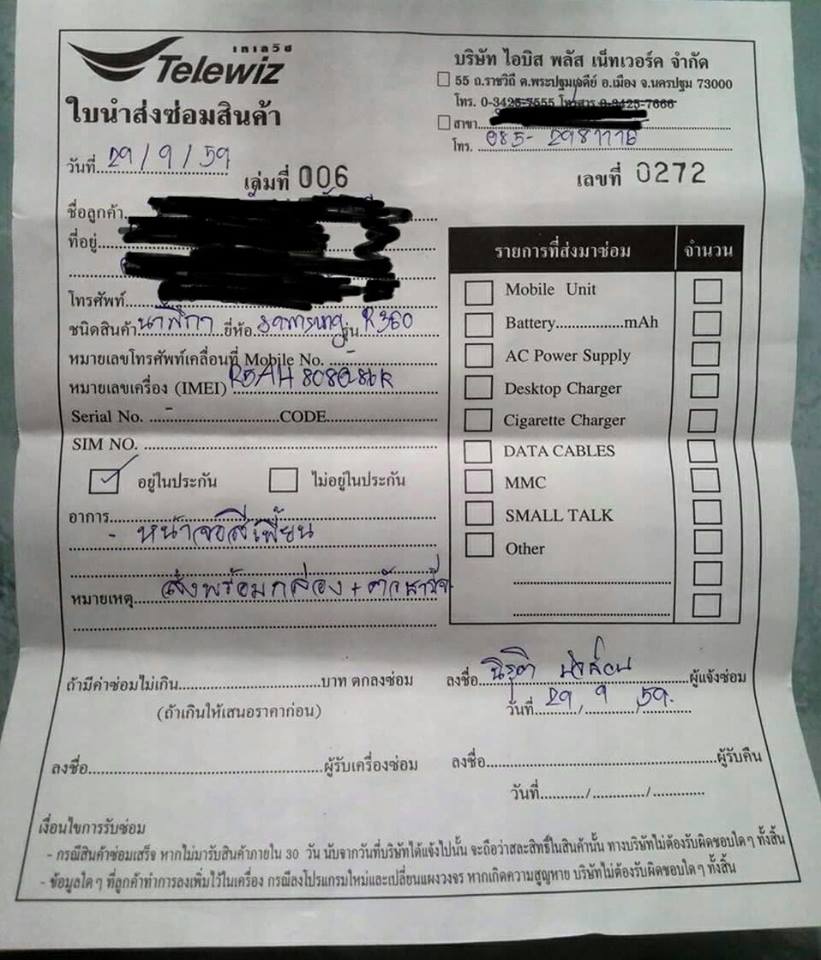 เทเลวิซ
Telewiz
ใบนำส่งซ่อมสินค้า
บริษัท ไอบิส พลัส เน็ทเวอร์ค จำกัด
55 ถ.ราชวิถี ต.พระปฐมเจดีย์ อ.เมือง จ.นครปฐม 73000
โทร. 0-3425-7555 โทรสาร 0-3425-7666
สาขา
โทร. 085-2981116
วันที่ 29/9/59
เล่มที่ 006
เลขที่ 0272
ชื่อลูกค้า
ที่อยู่
โทรศัพท์
ชนิดสินค้า นาฬิกา ยี่ห้อ รุ่น R360
หมายเลขโทรศัพท์เคลื่อนที่ Mobile No. -
หมายเลขเครื่อง (IMEI)
Serial No. - CODE
SIM NO.
อยู่ในประกัน ไม่อยู่ในประกัน
อาการ
- หน้าจอสีเพี้ยน
หมายเหตุ ส่งพร้อมกล่อง +
รายการที่ส่งมาซ่อม จำนวน
Mobile Unit
Battery..............mAh
AC Power Supply
Desktop Charger
Cigarette Charger
DATA CABLES
MMC
SMALL TALK
Other
ถ้ามีค่าซ่อมไม่เกิน..............................บาท ตกลงซ่อม
(ถ้าเกินให้เสนอราคาก่อน)
ลงชื่อ ผู้แจ้งซ่อม
วันที่ 29/9/59
ลงชื่อ..............................ผู้รับเครื่องซ่อม
ลงชื่อ..............................ผู้รับคืน
วันที่.........../.........../...........
เงื่อนไขการรับซ่อม
- กรณีสินค้าซ่อมเสร็จ หากไม่มารับสินค้าภายใน 30 วัน นับจากวันที่บริษัทได้แจ้งไปนั้น จะถือว่าสละสิทธิ์ในสินค้านั้น ทางบริษัทไม่ต้องรับผิดชอบใดๆ ทั้งสิ้น
- ข้อมูลใดๆ ที่ลูกค้าทำการลงเพิ่มไว้ในเครื่อง กรณีลงโปรแกรมใหม่และเปลี่ยนแผงวงจร หากเกิดความสูญหาย บริษัทไม่ต้องรับผิดชอบใดๆ ทั้งสิ้น